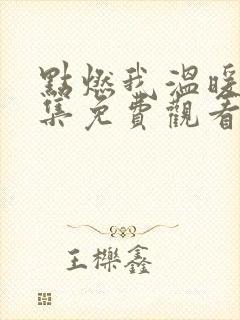 點燃我溫暖
集免費觀看
王櫟鑫